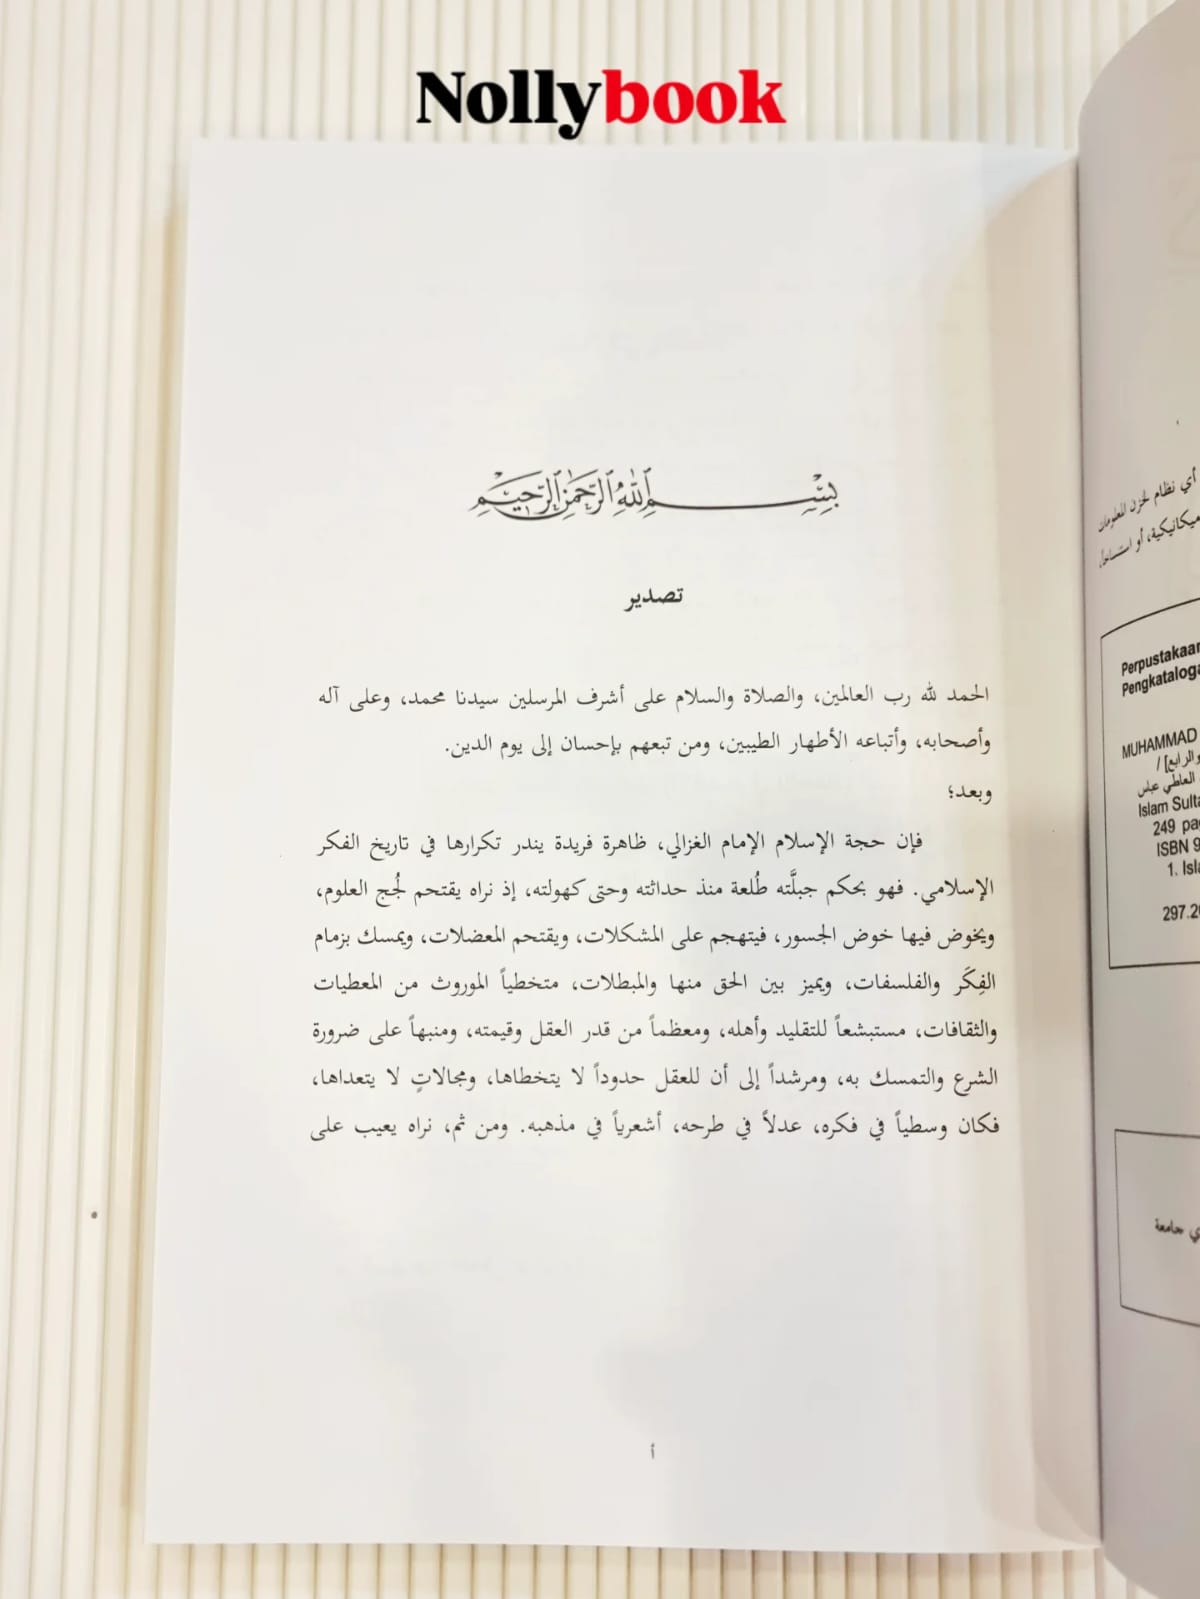 Nollybook
بسم الله الرحمن الرحيم
تصدير
الحمد لله رب العالمين، والصلاة والسلام على أشرف المرسلين سيدنا محمد، وعلى آله
وأصحابه، وأتباعه الأطهار الطيبين، ومن تبعهم بإحسان إلى يوم الدين.
وبعد؛
فإن حجة الإسلام الإمام الغزالي، ظاهرة فريدة يندر تكرارها في تاريخ الفكر
الإسلامي. فهو بحكم جبلَّته طُلعة منذ حداثته وحتى كهولته، إذ نراه يقتحم لُجج العلوم،
ويخوض فيها خوض الجسور، فيتهجم على المشكلات، ويقتحم المعضلات، ويمسك بزمام
الفِكَر والفلسفات، ويميز بين الحق منها والمبطلات، متخطياً الموروث من المعطيات
والثقافات، مستبشعاً للتقليد وأهله، ومعظماً من قدر العقل وقيمته، ومنبهاً على ضرورة
الشرع والتمسك به، ومرشداً إلى أن للعقل حدوداً لا يتخطاها، ومجالاتٍ لا يتعداها،
فكان وسطياً في فكره، عدلاً في طرحه، أشعرياً في مذهبه. ومن ثم، نراه يعيب على
أ
أي نظام لخزن المعلومات
ميكانيكية، أو استنساخاً،
Perpustakaan
Pengkataloga
MUHAMMAD
والرابع] /
العاطي عباس
Islam Sulta
249 pag
ISBN 9
1. Isla
297.20
ي جامعة